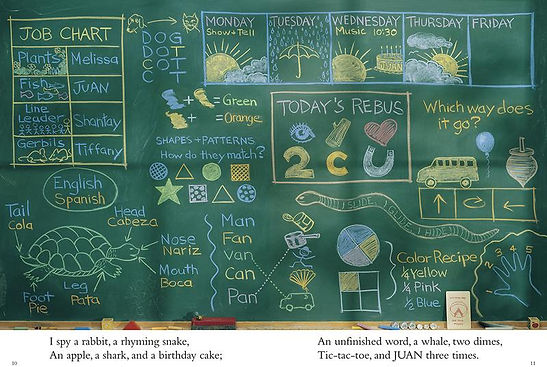 JOB CHART
Plants Melissa
Fish JUAN
Line
Leader Shantay
Gerbils Tiffany
DOG
DOT
COT
C T
MONDAY
Show + Tell
TUESDAY
WEDNESDAY
Music 10:30
JUAN
THURSDAY
FRIDAY
+ = Green
+ = Orange
SHAPES + PATTERNS
How do they match?
TODAY'S REBUS
2 C U
Which way does
it go?
English
Spanish
Tail
Cola
Head
Cabeza
Nose
Nariz
Mouth
Boca
Leg
Pata
Foot
Pie
Man
Fan
van
Can
Pan
I SLIDE, I GLIDE, I HIDE
Color Recipe
1/4 Yellow
1/4 Pink
1/2 Blue
1 2 3 4 5
I spy a rabbit, a rhyming snake,
An apple, a shark, and a birthday cake;
An unfinished word, a whale, two dimes,
Tic-tac-toe, and JUAN three times.
10
11